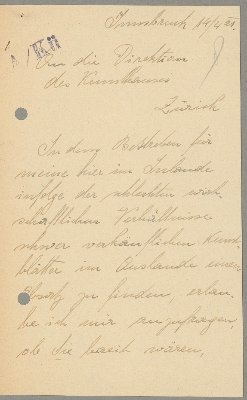 Innsbruck 14/2 21.
A/Kü
An die Direktion
des Kunsthauses
Zürich
In dem Bestreben für
meine hier im Inlande
infolge der schlechten wirt-
schaftlichen Verhältnisse
schwer verkäuflichen Kunst-
blätter im Auslande einen
Absatz zu finden, erlau-
be ich mir anzufragen,
ob Sie bereit wären,